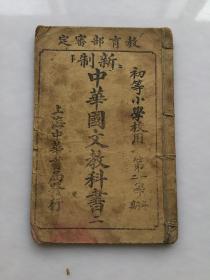 教育部審定
新制
中華國文教科書二
初等小學校用
第一學年
第二期
上海中華書局印行